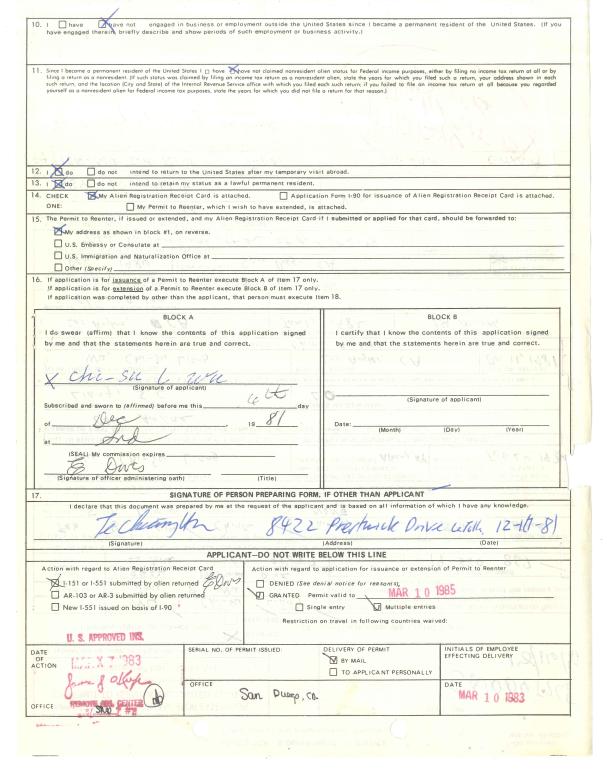 10. I ☐ have ☒ have not engaged in business or employment outside the United States since I became a permanent resident of the United States. (If you
have engaged therein, briefly describe and show periods of such employment or business activity.)
11. Since I became a permanent resident of the United States I ☐ have ☒ have not claimed nonresident alien status for Federal income purposes, either by filing no income tax return at all or by
filing a return as a nonresident. (If such status was claimed by filing an income tax return as a nonresident alien, state the years for which you filed such a return, your address shown in each
such return, and the location (City and State) of the Internal Revenue Service office with which you filed each such return; if you failed to file an income tax return at all because you regarded
yourself as a nonresident alien for Federal income tax purposes, state the years for which you did not file a return for that reason.)
12. I ☒ do ☐ do not intend to return to the United States after my temporary visit abroad.
13. I ☒ do ☐ do not intend to retain my status as a lawful permanent resident.
14. CHECK ☒ My Alien Registration Receipt Card is attached. ☐ Application Form I-90 for issuance of Alien Registration Receipt Card is attached.
ONE: ☐ My Permit to Reenter, which I wish to have extended, is attached.
15. The Permit to Reenter, if issued or extended, and my Alien Registration Receipt Card if I submitted or applied for that card, should be forwarded to:
☒ My address as shown in block #1, on reverse.
☐ U.S. Embassy or Consulate at
☐ U.S. Immigration and Naturalization Office at
☐ Other (Specify)
16. If application is for issuance of a Permit to Reenter execute Block A of Item 17 only.
If application is for extension of a Permit to Reenter execute Block B of Item 17 only.
If application was completed by other than the applicant, that person must execute Item 18.
BLOCK A
I do swear (affirm) that I know the contents of this application signed
by me and that the statements herein are true and correct.
X Chi-Su L Wu
(Signature of applicant)
Subscribed and sworn to (affirmed) before me this 6th day
of Dec 19 81
at Snd
(SEAL) My commission expires
(Signature of officer administering oath) (Title)
BLOCK B
I certify that I know the contents of this application signed
by me and that the statements herein are true and correct.
(Signature of applicant)
Date:
(Month) (Day) (Year)
17. SIGNATURE OF PERSON PREPARING FORM, IF OTHER THAN APPLICANT
I declare that this document was prepared by me at the request of the applicant and is based on all information of which I have any knowledge.
8422 Prestwick Drive
(Signature) (Address) (Date)
APPLICANT—DO NOT WRITE BELOW THIS LINE
Action with regard to Alien Registration Receipt Card
☒ I-151 or I-551 submitted by alien returned
☐ AR-103 or AR-3 submitted by alien returned
☐ New I-551 issued on basis of I-90
Action with regard to application for issuance or extension of Permit to Reenter
☐ DENIED (See denial notice for reasons)
☑ GRANTED Permit valid to MAR 10 1985
☐ Single entry ☑ Multiple entries
Restriction on travel in following countries waived:
U. S. APPROVED INS.
DATE
OF
ACTION
1983
OFFICE
SERIAL NO. OF PERMIT ISSUED
DELIVERY OF PERMIT
☑ BY MAIL
☐ TO APPLICANT PERSONALLY
INITIALS OF EMPLOYEE
EFFECTING DELIVERY
OFFICE
San Diego, Ca.
DATE
MAR 10 1983